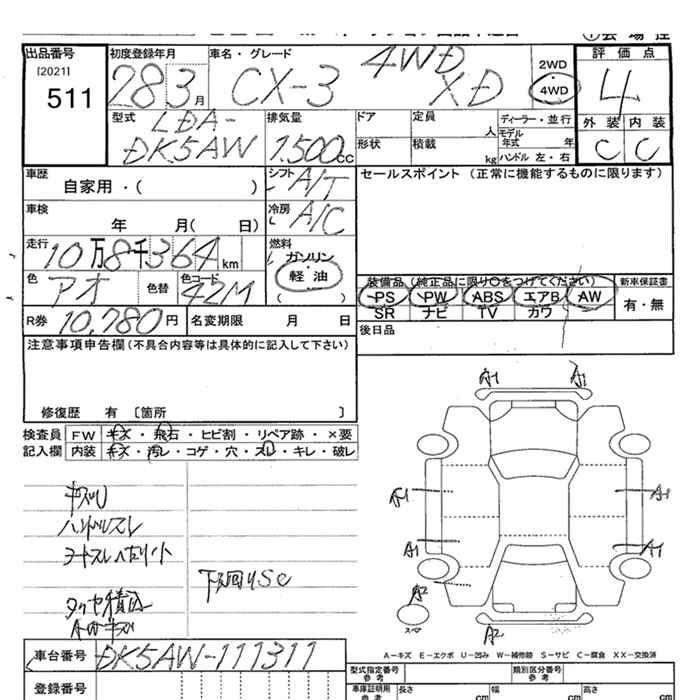 出品番号 初度登録年月 車名・グレード 4WD 2WD 評価点
[2021] 511 28 3月 CX-3 XD 4WD 4
型式 LDA-DK5AW 排気量 1.500cc ドア 定員 人 ディーラー・並行 外装 内装
形状 積載 kg モデル年式 年 ハンドル 左・右 C C
車歴 自家用・( ) シフト A/T セールスポイント (正常に機能するものに限ります)
車検 年 月( 日) 冷房 A/C
走行 10万8千364km 燃料 ガソリン 軽・油 ( )
色 アオ 色替 色コード 42M
装備品(純正品に限り○をつけてください) 新車保証書
PS PW ABS エアB AW 有・無
SR ナビ TV カワ
R券 10,780円 名変期限 月 日 後日品
注意事項申告欄(不具合内容等は具体的に記入して下さい)
修復歴 有 [箇所 ]
検査員 FW キズ・飛石・ヒビ割・リペア跡・×要
記入欄 内装 キズ・汚レ・コゲ・穴・スレ・キレ・破レ
A1 A1
A1 A1
A1 A1
ハンドルスレ
下回りSC
タイヤ積込
A2
スペア
A2
A-キズ E-エクボ U-凹み W-補修跡 S-サビ C-腐食 XX-交換済
車台番号 DK5AW-111311
型式指定番号 参考 類別区分番号 参考
登録番号 車庫証明用 参考 長さ cm 幅 cm 高さ cm